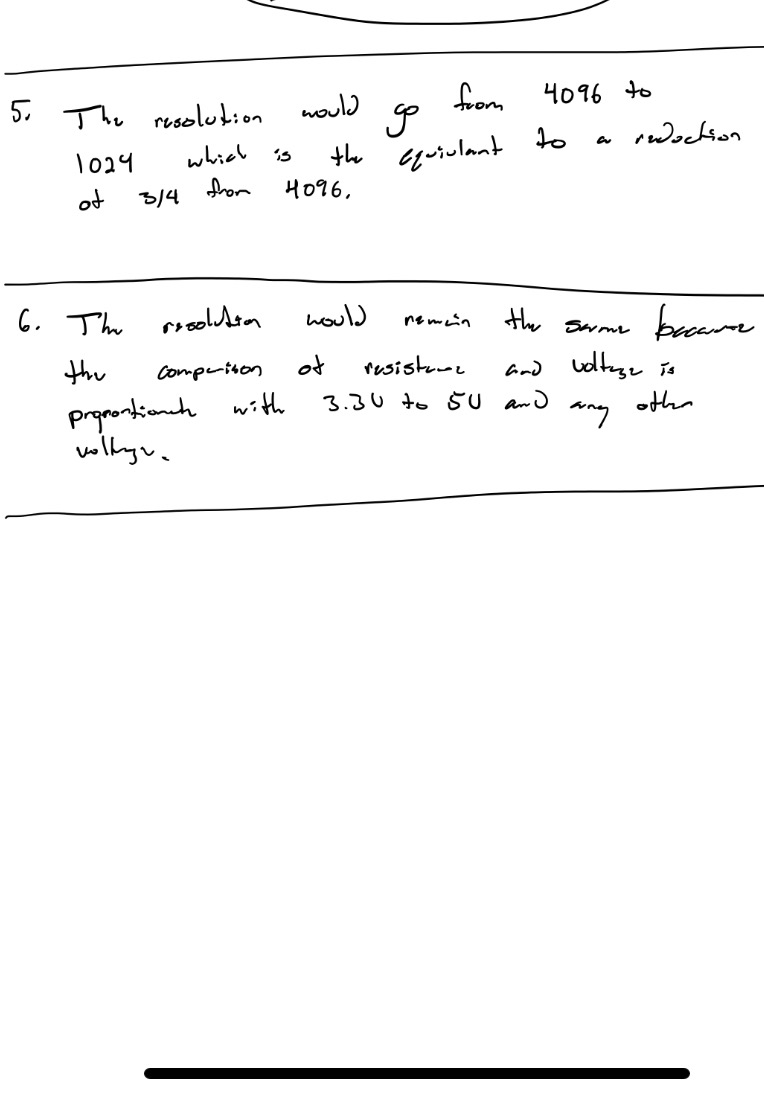 5. The resolution would go from 4096 to
1024 which is the equivlant to a reduction
of 3/4 from 4096.
6. The resolution would remain the same because
the comparison of resistance and voltage is
with 3.3V to 5V and any other
voltage.